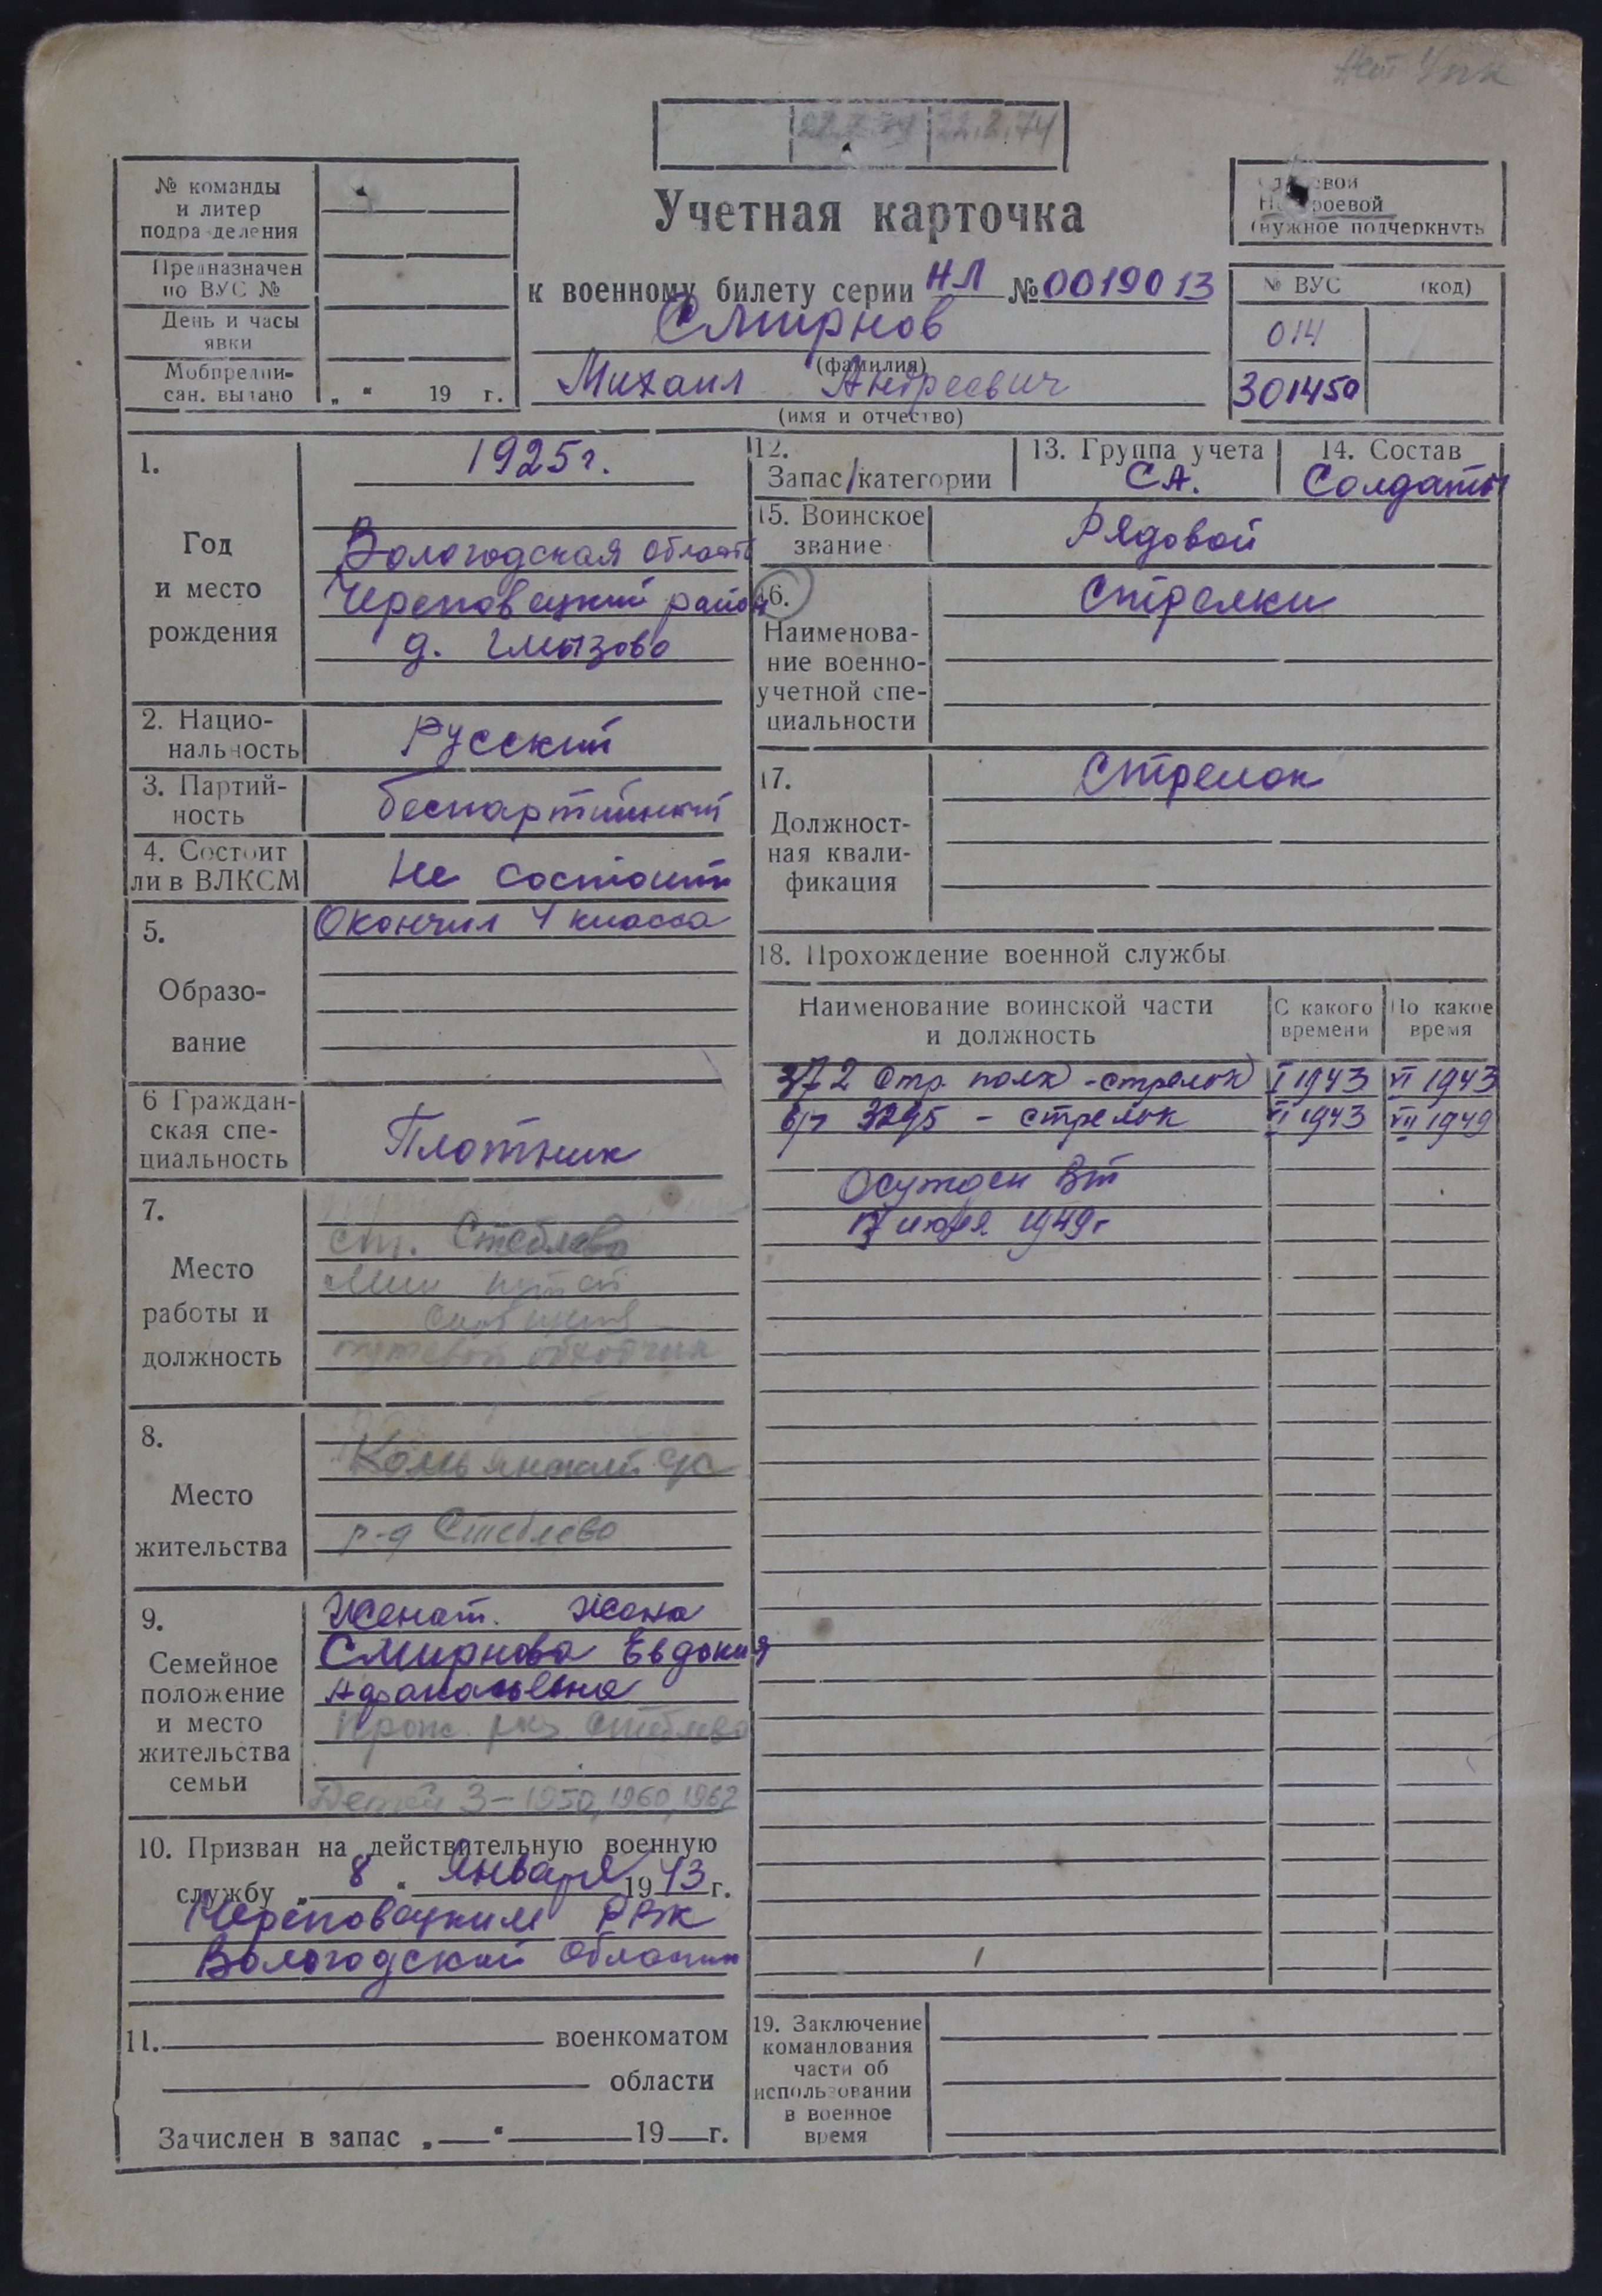 22.2.74
№ команды
и литер
подразделения
Предназначен
по ВУС №
День и часы
явки
Мобпредпи-
сан. выдано „ “ 19 г.
Учетная карточка
к военному билету серии НЛ № 0019013
Смирнов
(фамилия)
Михаил Андреевич
(имя и отчество)
Строевой
Нестроевой
(нужное подчеркнуть
№ ВУС (код)
014
301450
1.
Год
и место
рождения
1925 г.
Вологодская область
Череповецкий район
д. Гмызово
2. Нацио-
нальность
Русский
3. Партий-
ность
беспартийный
4. Состоит
ли в ВЛКСМ
Не состоит
5.
Образо-
вание
Окончил 4 класса
6 Граждан-
ская спе-
циальность
Плотник
7.
Место
работы и
должность
ст. Стеблево
путевой обходчик
8.
Место
жительства
р-д Стеблево
9.
Семейное
положение
и место
жительства
семьи
Женат. Жена
Смирнова Евдокия
Афанасьевна
Прож. рaз. Стеблево
Детей 3 – 1950, 1960, 1962
10. Призван на действительную военную
службу „ 8 “ Января 1943 г.
Череповецким РВК
Вологодской области
11. военкоматом
области
Зачислен в запас „ “ 19 г.
12.
Запас/категории
13. Группа учета
СА.
14. Состав
Солдаты
15. Воинское
звание
Рядовой
16.
Наименова-
ние военно-
учетной спе-
циальности
Стрелки
17.
Должност-
ная квали-
фикация
Стрелок
18. Прохождение военной службы
Наименование воинской части
и должность
С какого
времени
По какое
время
372 стр. полк - стрелок I 1943 VI 1943
в/ч 3295 - стрелок VI 1943 VII 1949
Осужден ВТ
17 июля 1949 г
19. Заключение
командования
части об
использовании
в военное
время